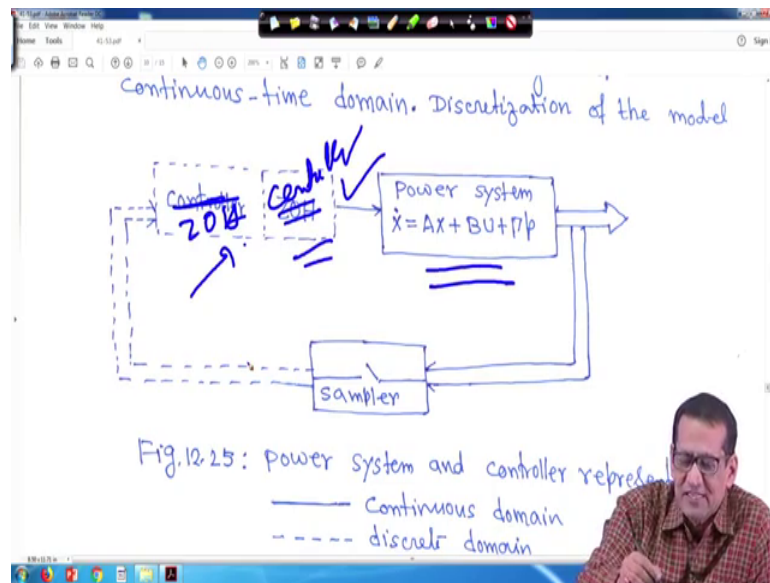 41-53.pdf - Adobe Acrobat Reader DC
File Edit View Window Help
Home Tools 41-53.pdf
Sign
Continuous-time domain. Discretization of the model
controller
ZOH
power system
ẋ = AX + BU + Γp
sampler
Fig.12.25: power system and controller represen
Continuous domain
discrete domain